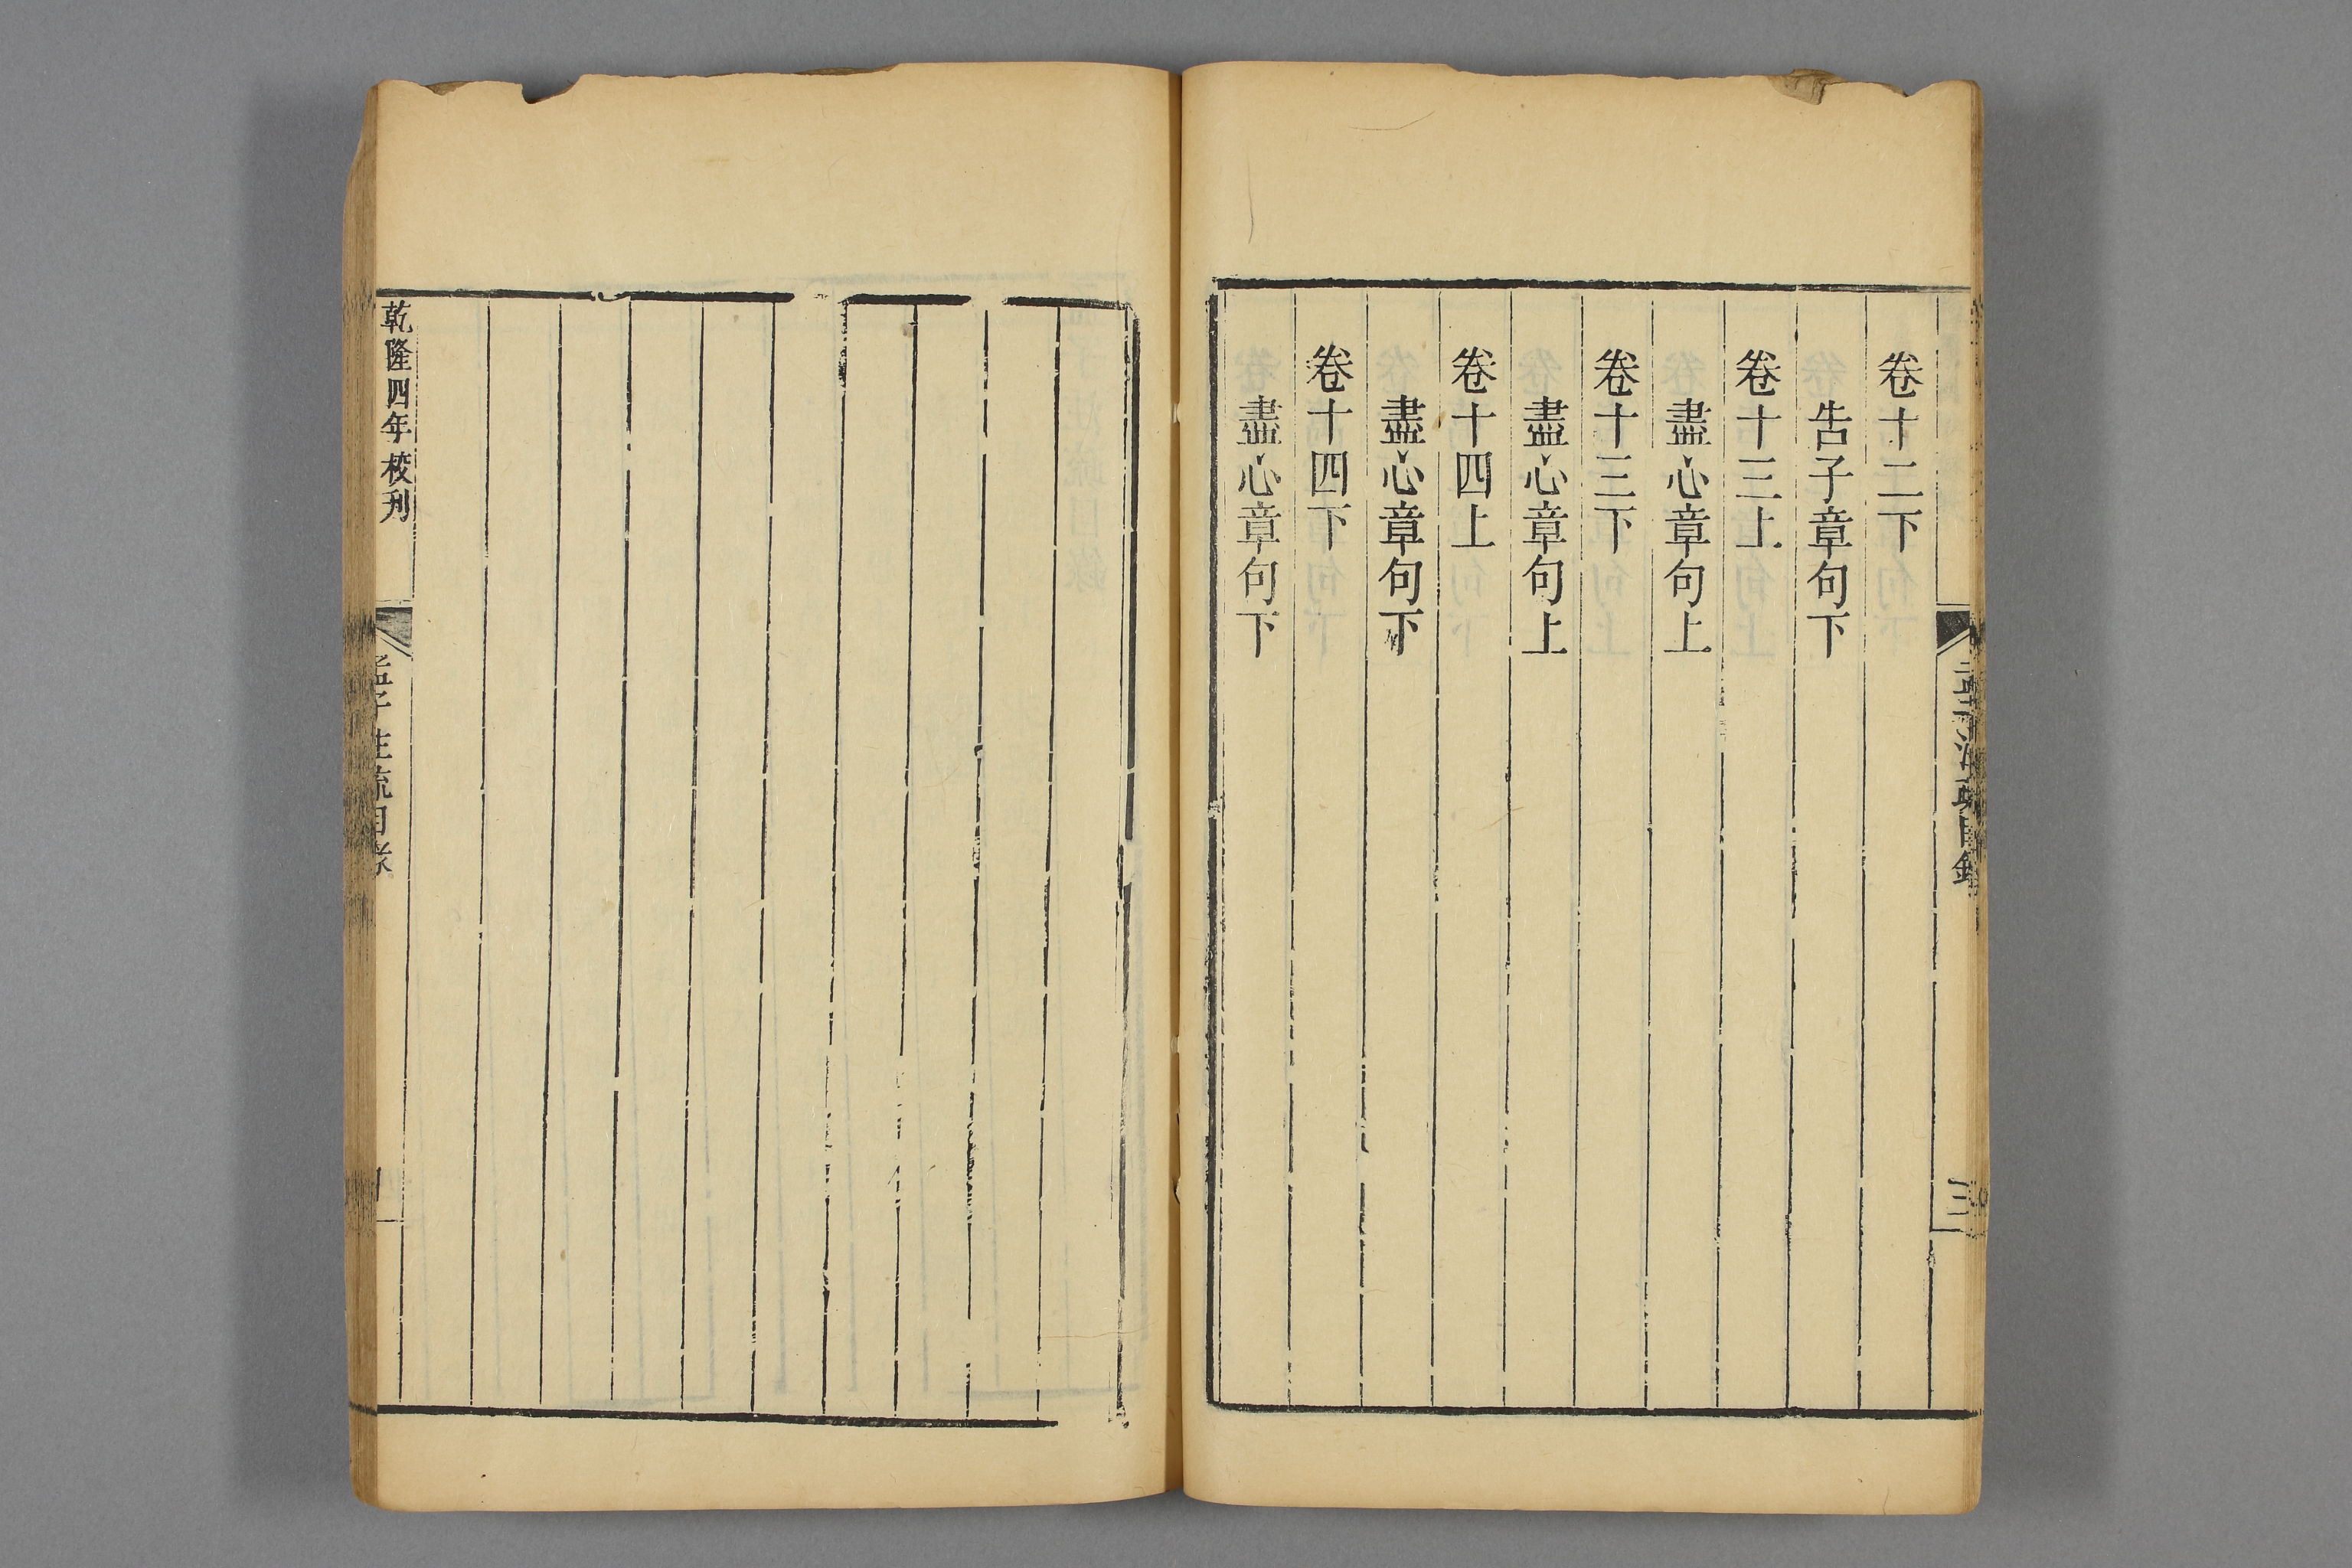 卷十二下
告子章句下
卷十三上
盡心章句上
卷十三下
盡心章句上
卷十四上
盡心章句下
卷十四下
盡心章句下
乾隆四年校刊
孟子注疏目錄